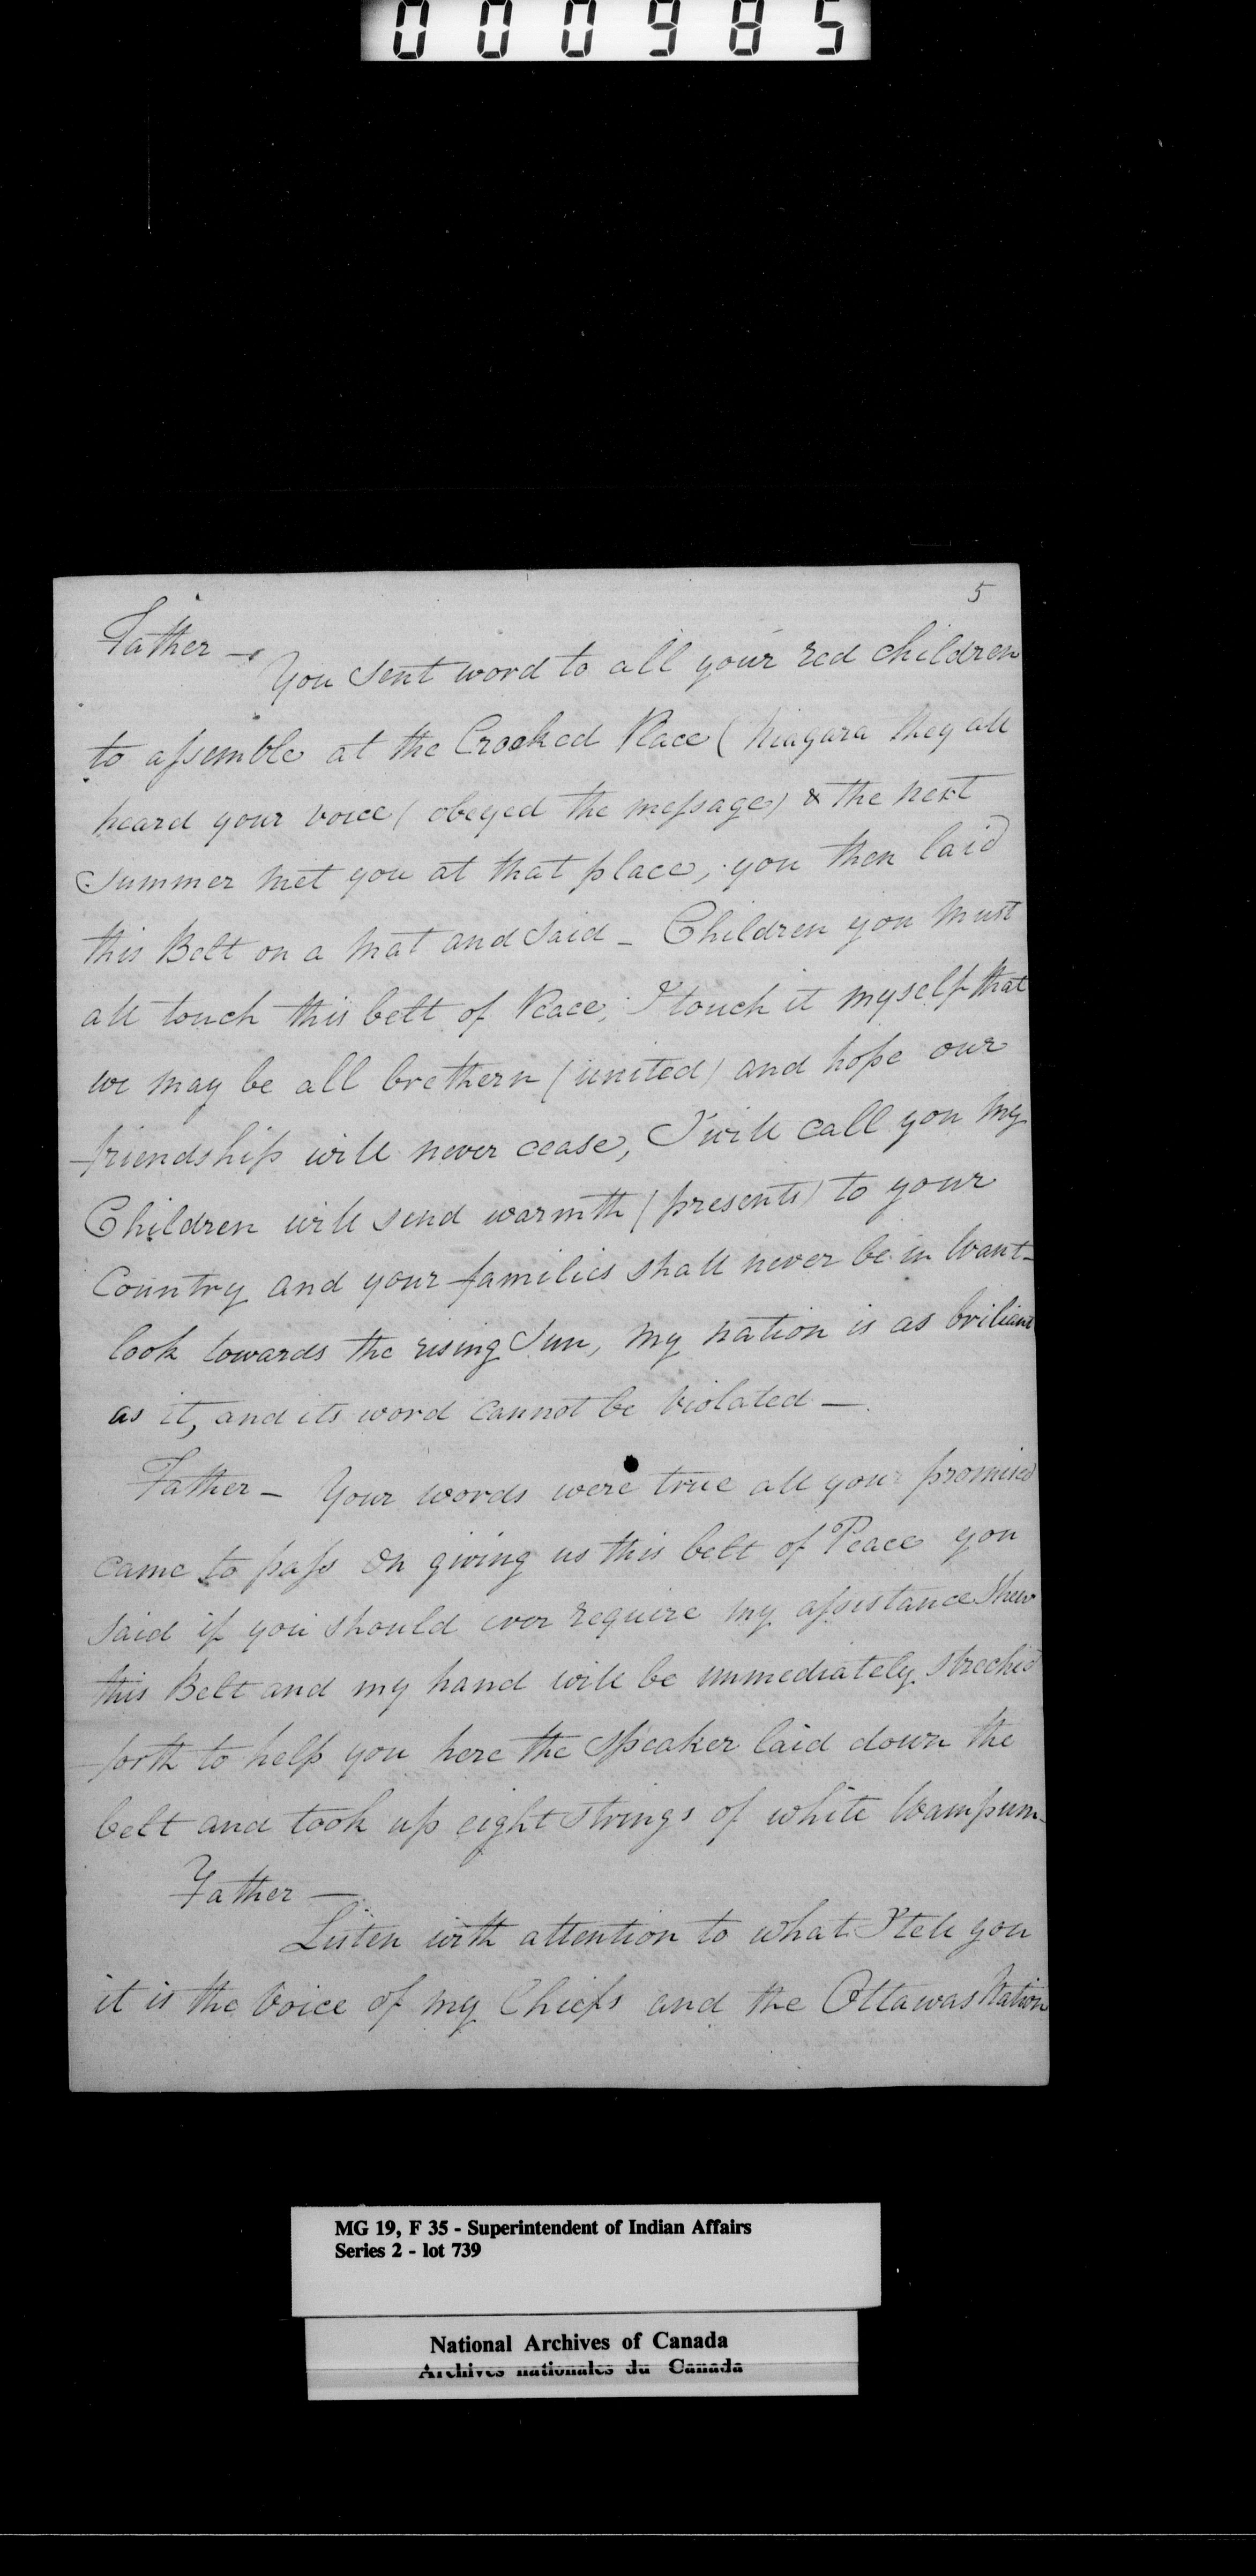 000985
5
Father —
You sent word to all your red children
to assemble at the Crooked Place (Niagara they all
heard your voice (obeyed the message) & the next
summer met you at that place, you then laid
this Belt on a mat and said – Children you must
all touch this belt of Peace, I touch it myself that
we may be all brethern (united) and hope our
friendship will never cease, I will call you my
Children will send warmth (presents) to your
Country and your families shall never be in Want –
look towards the rising Sun, my nation is as briliant
as it, and its word cannot be violated —
Father – Your words were true all your promised
came to pass On giving us this belt of Peace you
said if you should ever require my assistance shew
this Belt and my hand will be immediately streched
forth to help you here the speaker laid down the
belt and took up eight strings of white Wampum –
Father —
Listen with attention to what I tell you
it is the Voice of my Chiefs and the Ottawas Nation
MG 19, F 35 - Superintendent of Indian Affairs
Series 2 - lot 739
National Archives of Canada
Archives nationales du Canada